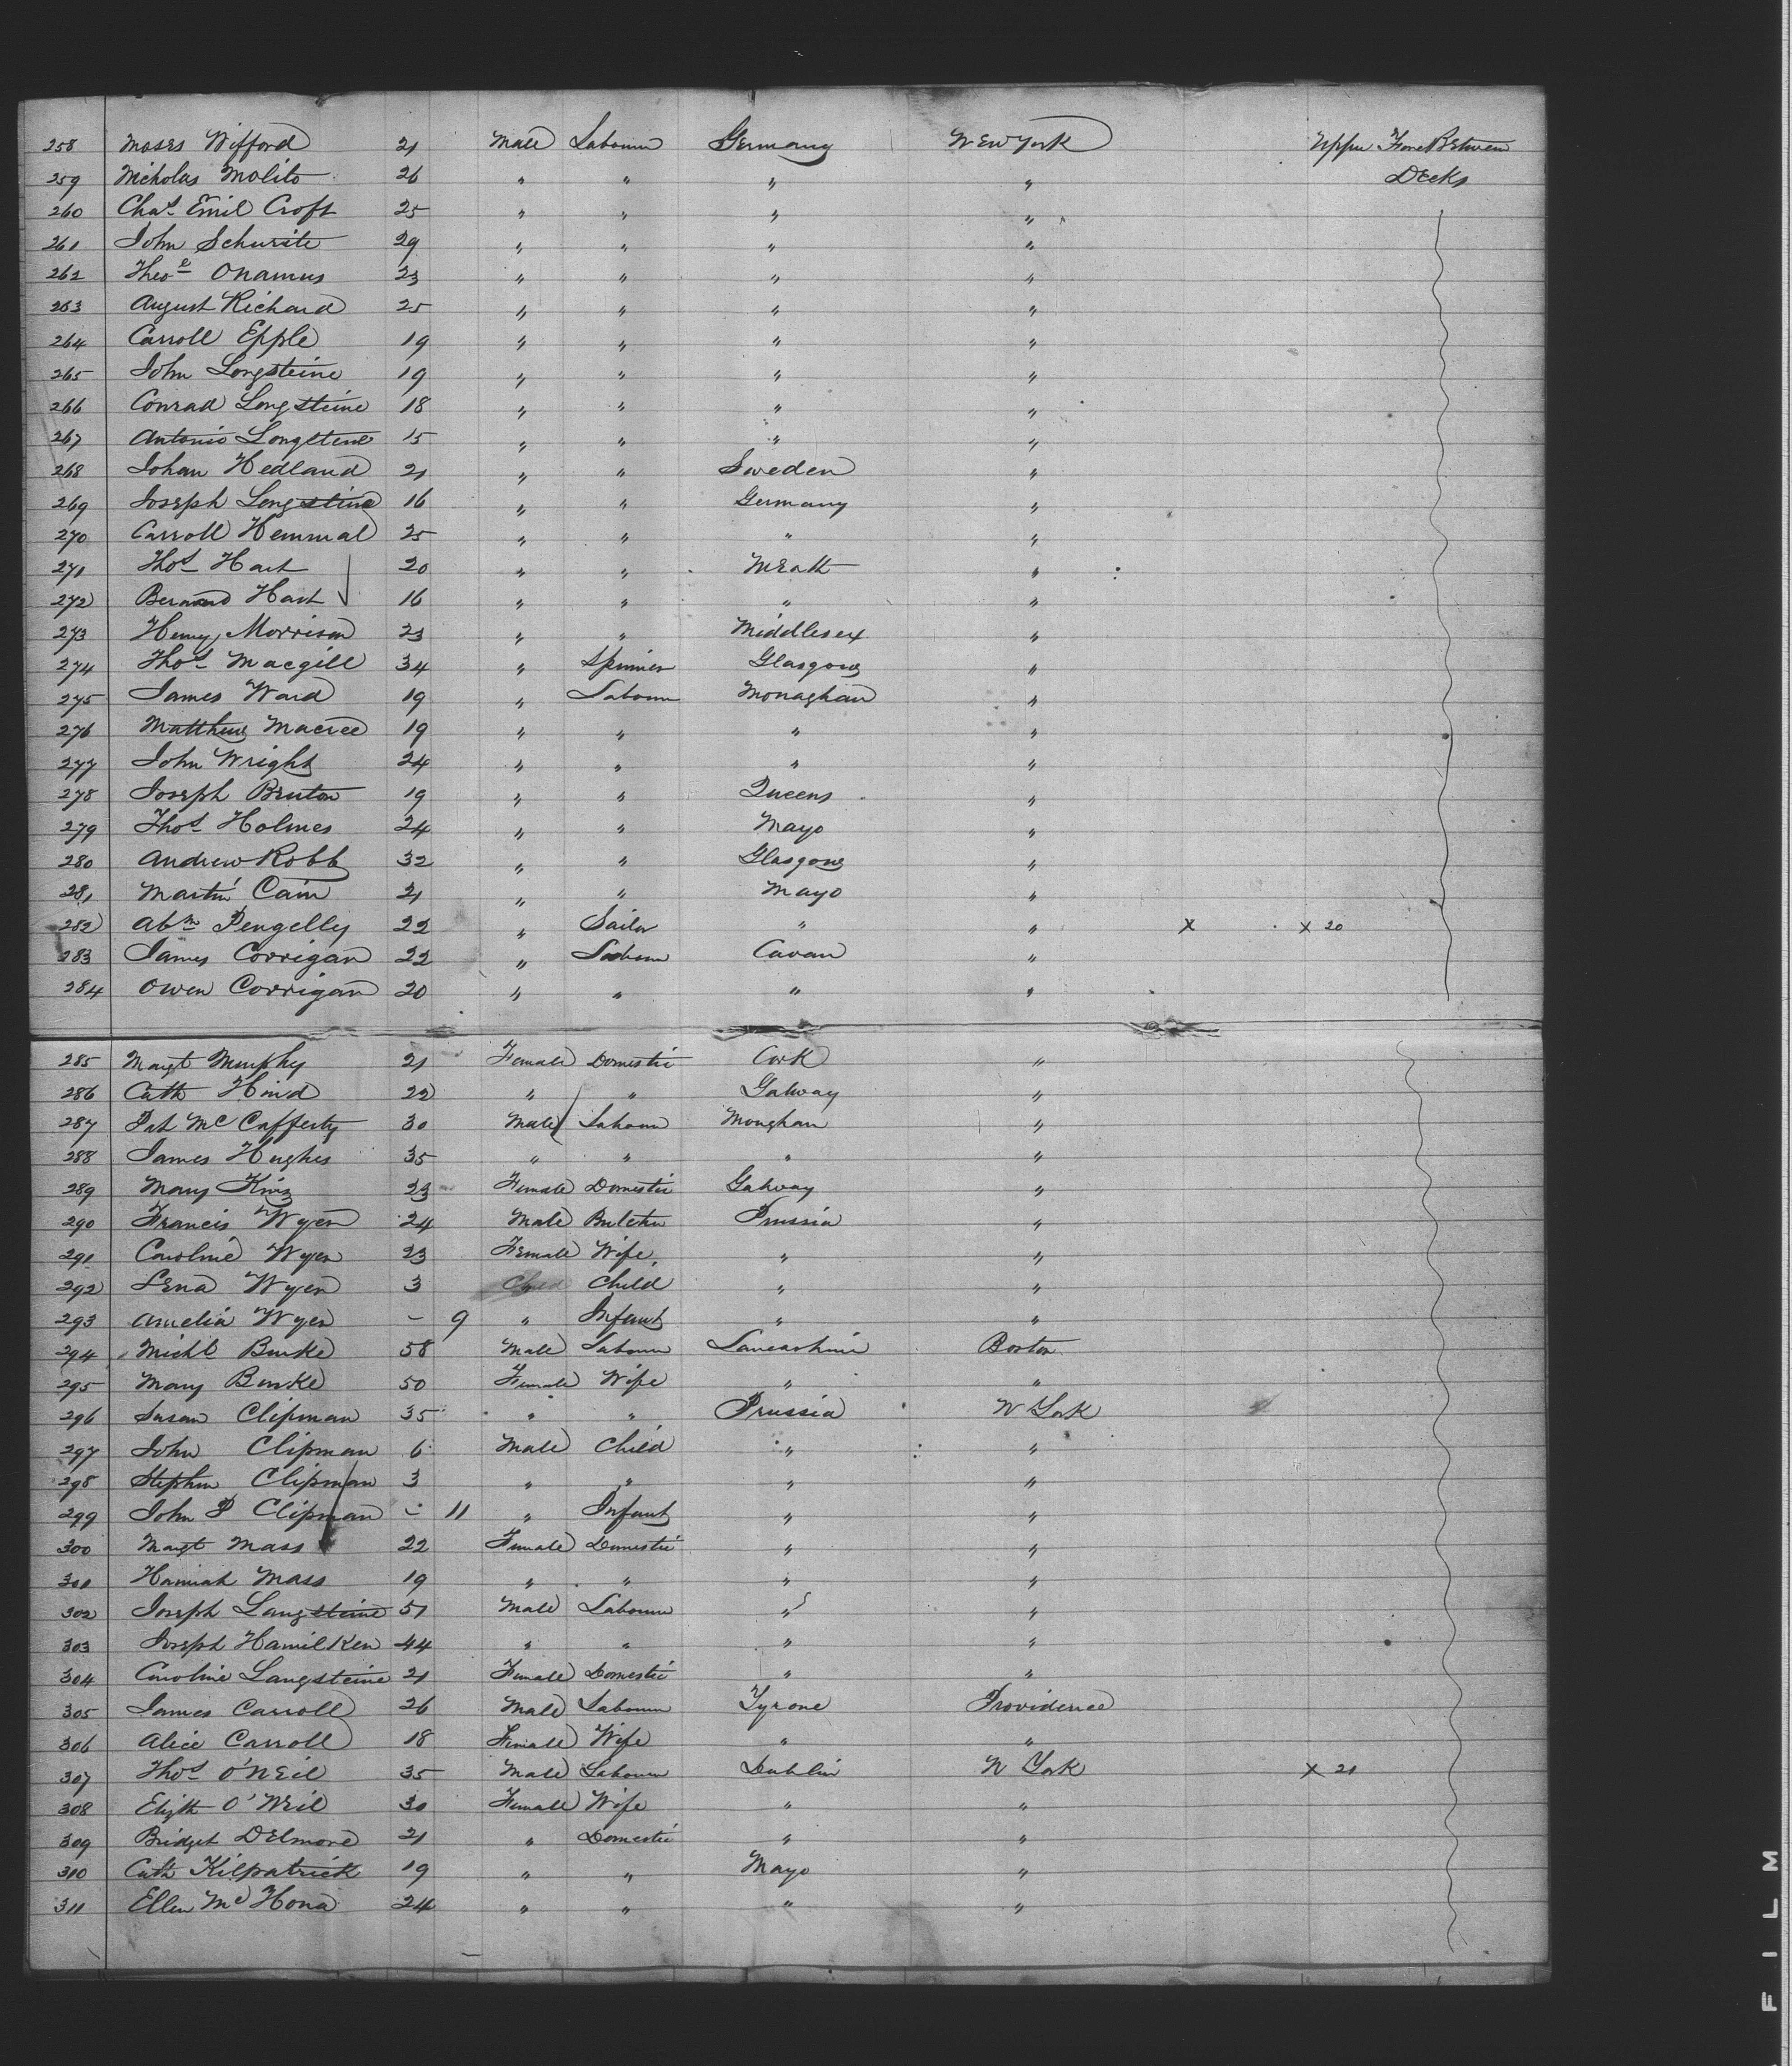 258 Moses Wifford 21 Male Labourer Germany New York Upper Fore Between
259 Nicholas Molito 26 " " " " Decks
260 Chas Emil Croft 25 " " " "
261 John Schurite 29 " " " "
262 Theoe Onamus 23 " " " "
263 August Richard 25 " " " "
264 Carroll Epple 19 " " " "
265 John Longsteine 19 " " " "
266 Conrad Longsteine 18 " " " "
267 Antonio Longsteine 15 " " " "
268 Johan Hedland 21 " " Sweden "
269 Joseph Longstine 16 " " Germany "
270 Carroll Hemmal 25 " " " "
271 Thos Hart 20 " " Meath "
272 Bernard Hart 16 " " " "
273 Henry Morrison 23 " " Middlesex "
274 Thos Macgill 34 " Spinner Glasgow "
275 James Ward 19 " Labourer Monaghan "
276 Matthew Macree 19 " " " "
277 John Wright 24 " " " "
278 Joseph Bruton 19 " " Queens "
279 Thos Holmes 24 " " Mayo "
280 Andrew Robb 32 " " Glasgow "
281 Martin Cain 21 " " Mayo "
282 Abm Pengelly 22 " Sailor " " X X 20
283 James Corrigan 22 " Labourer Cavan "
284 Owen Corrigan 20 " " " "
285 Margt Murphy 21 Female Domestic Cork "
286 Cath Hind 22 " " Galway "
287 Pat McCafferty 30 Male Labourer Monghan "
288 James Hughes 35 " " " "
289 Mary King 23 Female Domestic Galway "
290 Francis Wyen 24 Male Butcher Prussia "
291 Caroline Wyen 23 Female Wife " "
292 Lena Wyen 3 Child Child " "
293 Amelia Wyen - 9 " Infant " "
294 Michl Burke 58 Male Labourer Lancashire Boston
295 Mary Burke 50 Female Wife " "
296 Susan Clipman 35 " " Prussia N York
297 John Clipman 6 Male Child " "
298 Stephen Clipman 3 " " " "
299 John P Clipman - 11 " Infant " "
300 Margt Mass 22 Female Domestic " "
301 Hannah Mass 19 " " " "
302 Joseph Langsteine 51 Male Labourer " "
303 Joseph Hamilken 44 " " " "
304 Caroline Langsteine 21 Female Domestic " "
305 James Carroll 26 Male Labourer Tyrone Providence
306 Alice Carroll 18 Female Wife " "
307 Thos O'Neil 35 Male Labourer Dublin N York X 21
308 Elizth O'Neil 30 Female Wife " "
309 Bridget Delmore 21 " Domestic " "
310 Cath Kilpatrick 19 " " Mayo "
311 Ellen McHona 24 " " " "
FILM